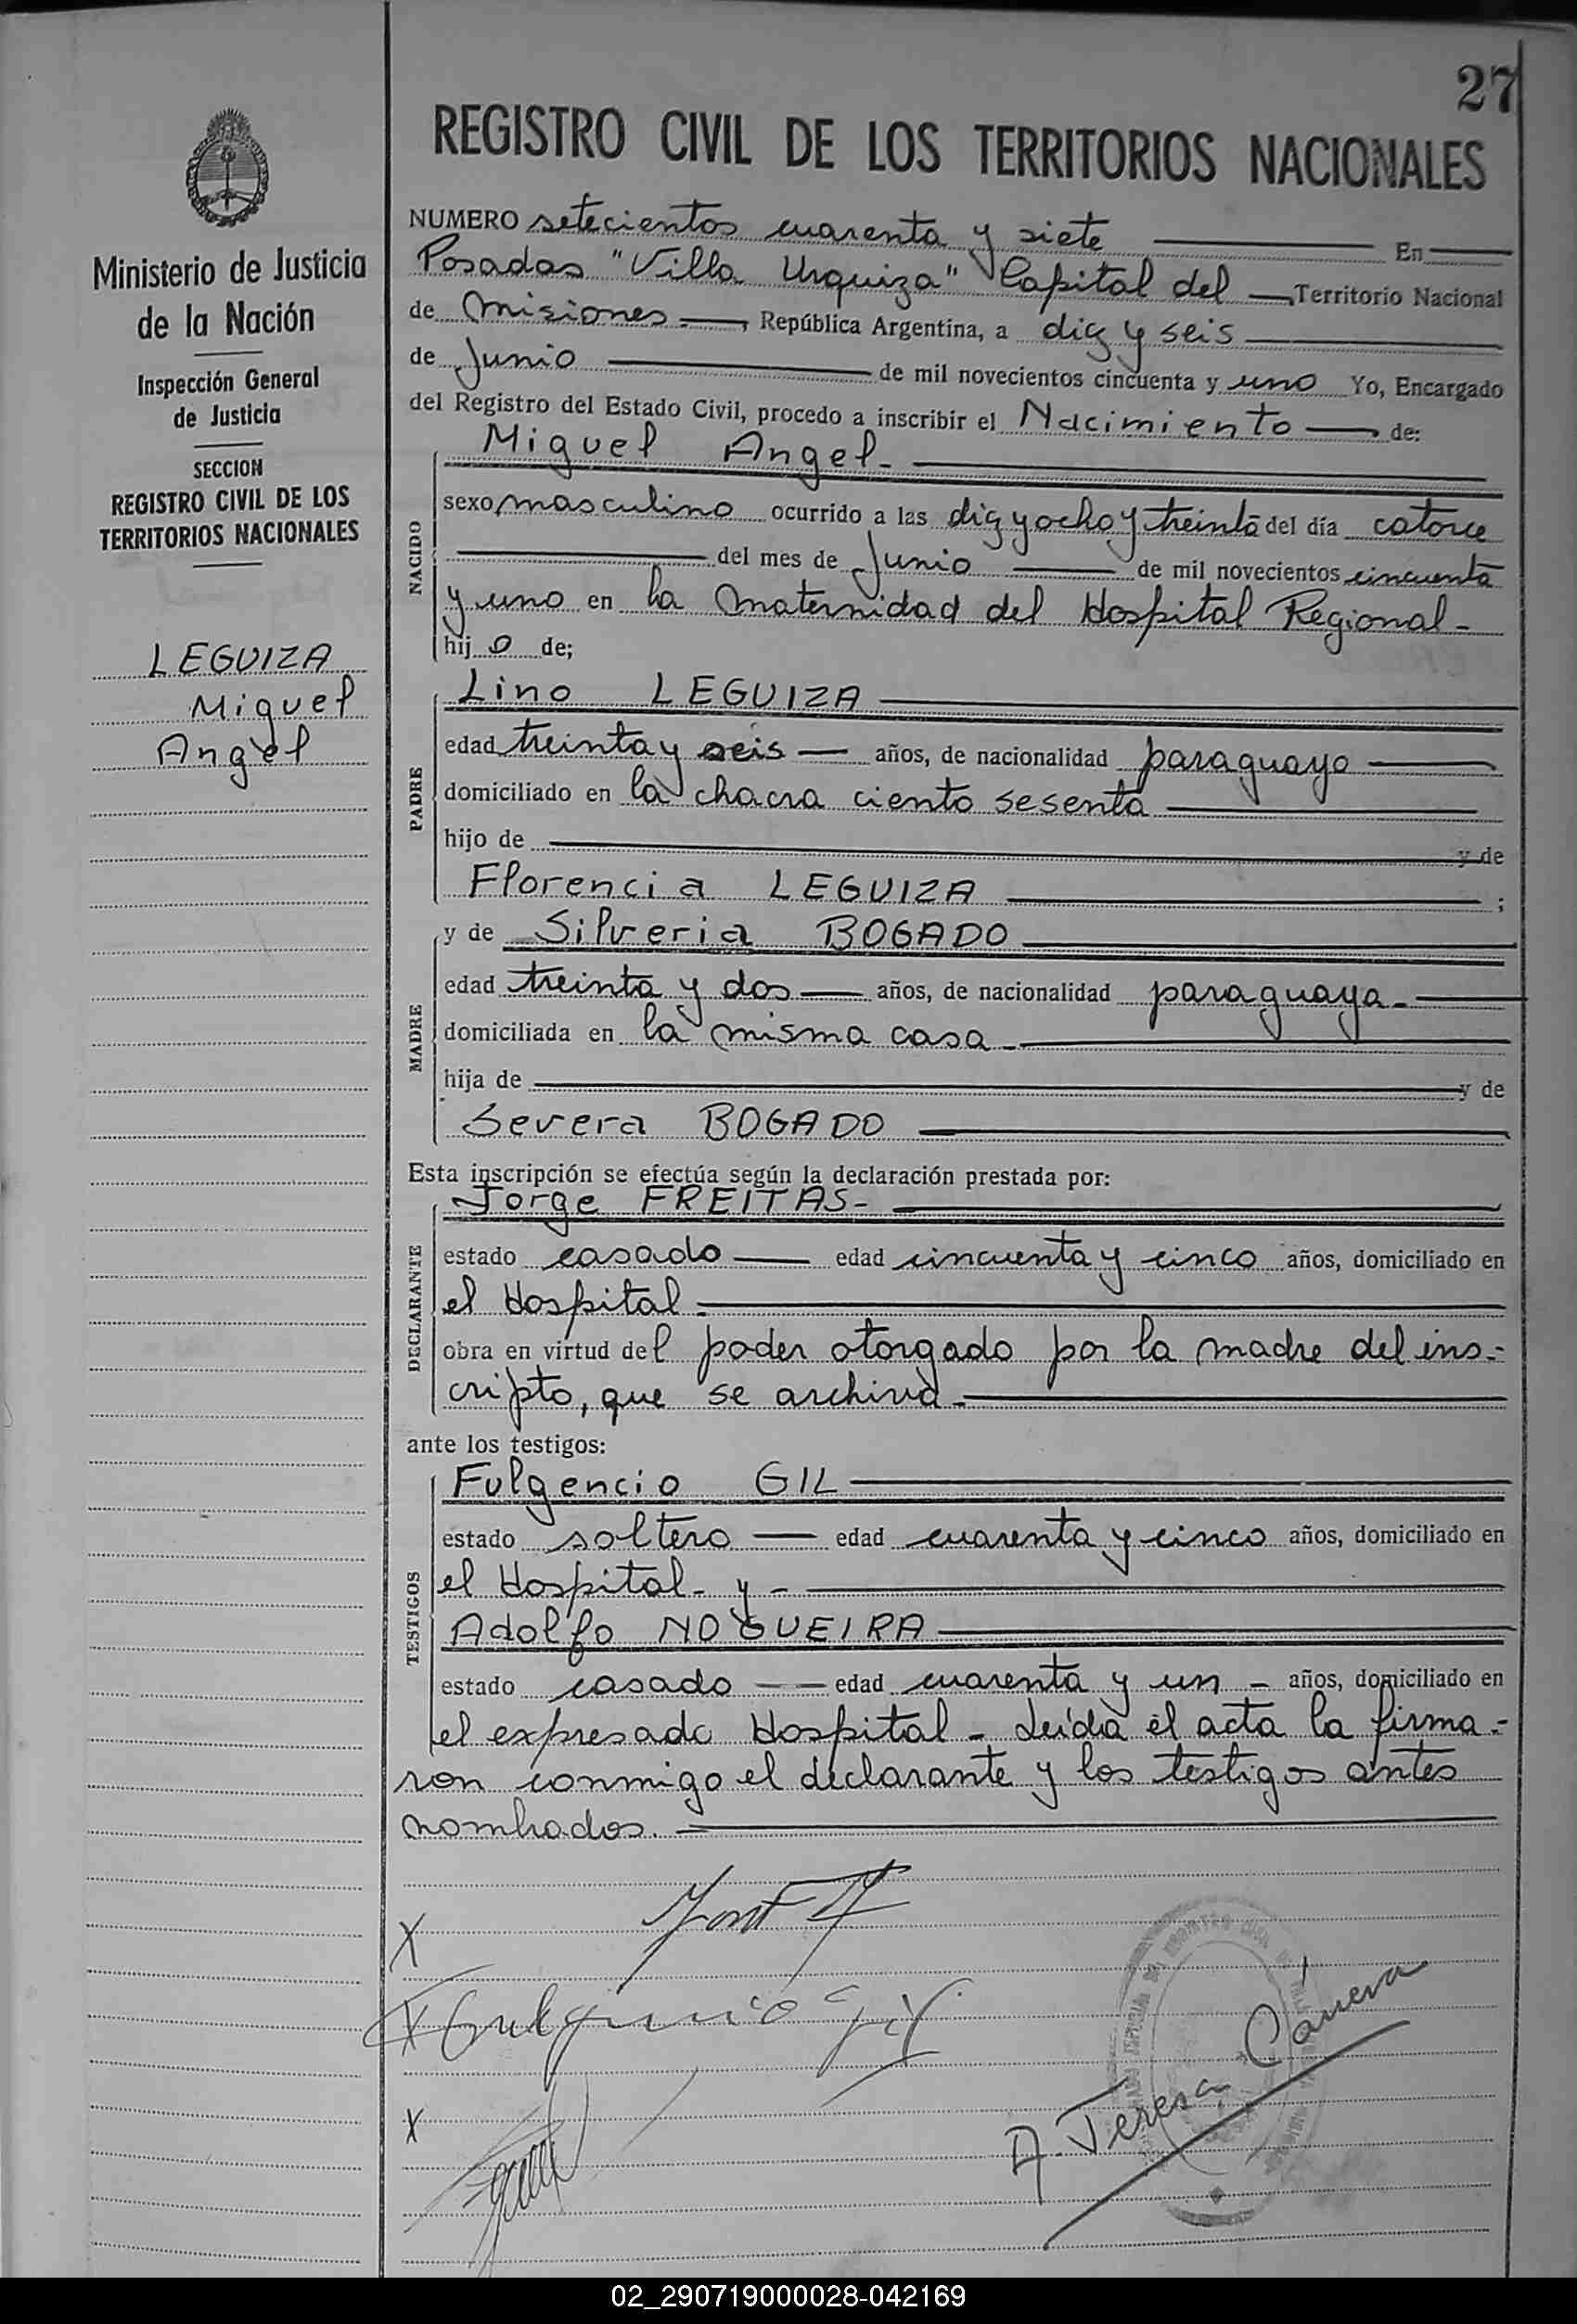 27
REGISTRO CIVIL DE LOS TERRITORIOS NACIONALES
Ministerio de Justicia
de la Nación
Inspección General
de Justicia
SECCION
REGISTRO CIVIL DE LOS
TERRITORIOS NACIONALES
LEGUIZA
Miguel
Angel
NUMERO setecientos cuarenta y siete En
Posadas "Villa Urquiza" Capital del Territorio Nacional
de Misiones.—, República Argentina, a diez y seis
de Junio de mil novecientos cincuenta y uno Yo, Encargado
del Registro del Estado Civil, procedo a inscribir el Nacimiento de:
NACIDO
Miguel Angel-
sexo masculino ocurrido a las diez y ocho y treinta del día catorce
del mes de Junio de mil novecientos cincuenta
y uno en la Maternidad del Hospital Regional-
hijo de;
PADRE
Lino LEGUIZA
edad treinta y seis años, de nacionalidad paraguayo
domiciliado en la chacra ciento sesenta
hijo de y de
Florencia LEGUIZA ;
MADRE
y de Silveria BOGADO
edad treinta y dos años, de nacionalidad paraguaya-
domiciliada en la misma casa-
hija de y de
Severa BOGADO
Esta inscripción se efectúa según la declaración prestada por:
DECLARANTE
Jorge FREITAS-
estado casado edad cincuenta y cinco años, domiciliado en
el Hospital-
obra en virtud del poder otorgado por la madre del ins-
cripto, que se archiva-
ante los testigos:
TESTIGOS
Fulgencio GIL
estado soltero edad cuarenta y cinco años, domiciliado en
el Hospital- y -
Adolfo NOGUEIRA
estado casado edad cuarenta y un - años, domiciliado en
el expresado Hospital- Leída el acta la firma-
ron conmigo el declarante y los testigos antes
nombrados.
X
X Fulgencio Gil
X
A. Teresa Cáneva
02_290719000028-042169